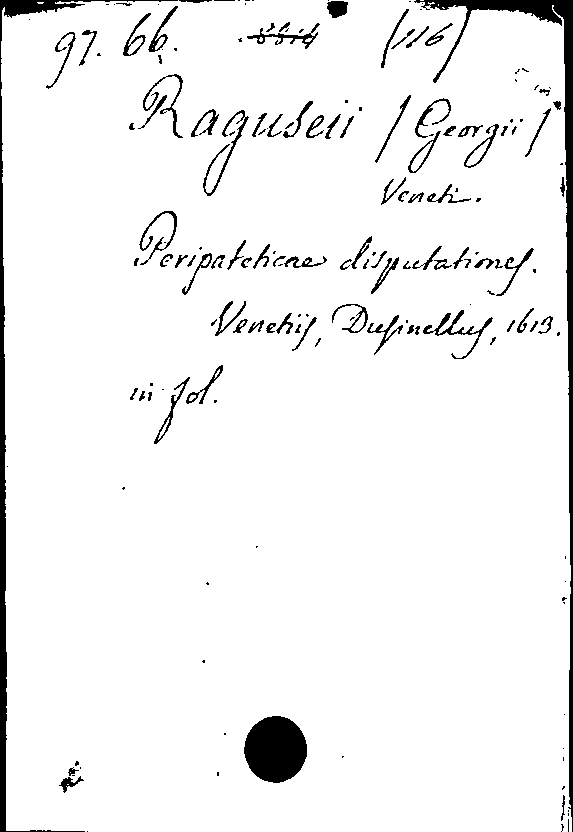 97. 66. (116)
Raguseii / Georgii /
Veneti.
Peripateticae disputationes.
Venetiis, Dusinellus, 1613.
in fol.